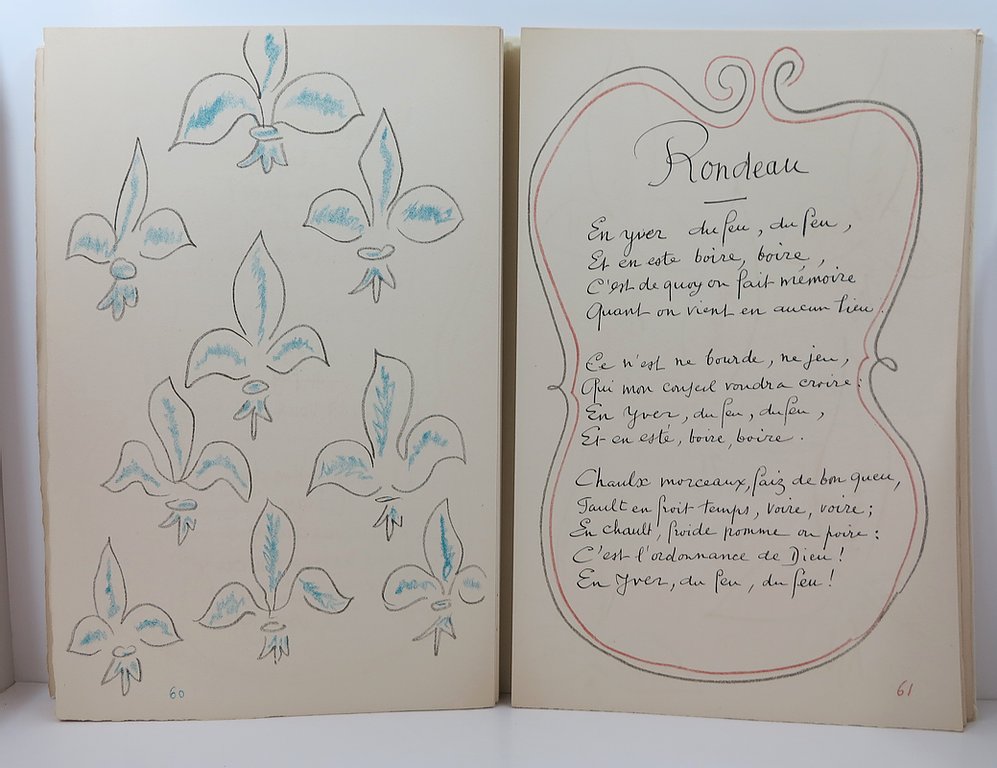 60
Rondeau
En yver du feu, du feu,
Et en este boire, boire,
C'est de quoy on fait mémoire
Quant on vient en aucun lieu.
Ce n'est ne bourde, ne jeu,
Qui mon conseil voudra croire:
En Yver, du feu, du feu,
Et en esté, boire, boire.
Chaulx morceaux, faiz de bon queu,
Fault en froit temps, voire, voire;
En chault, froide pomme ou poire:
C'est l'ordonnance de Dieu!
En Yver, du feu, du feu!
61